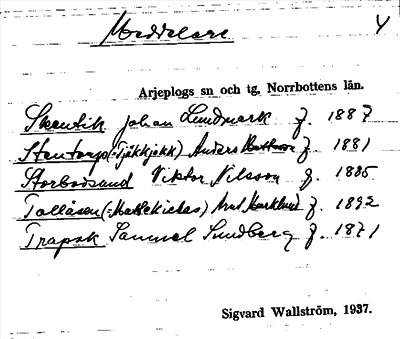 Meddelare
4
Arjeplogs sn och tg. Norrbottens län.
Skeutik Johan Lundmark f. 1887
Stentorp (=Tjäkkjokk) Anders Mattsson f. 1881
Storbodsand Viktor Nilsson f. 1885
Tallåsen Arvid Marklund f. 1892
Trapsk Samuel Sundberg f. 1871
Sigvard Wallström, 1937.